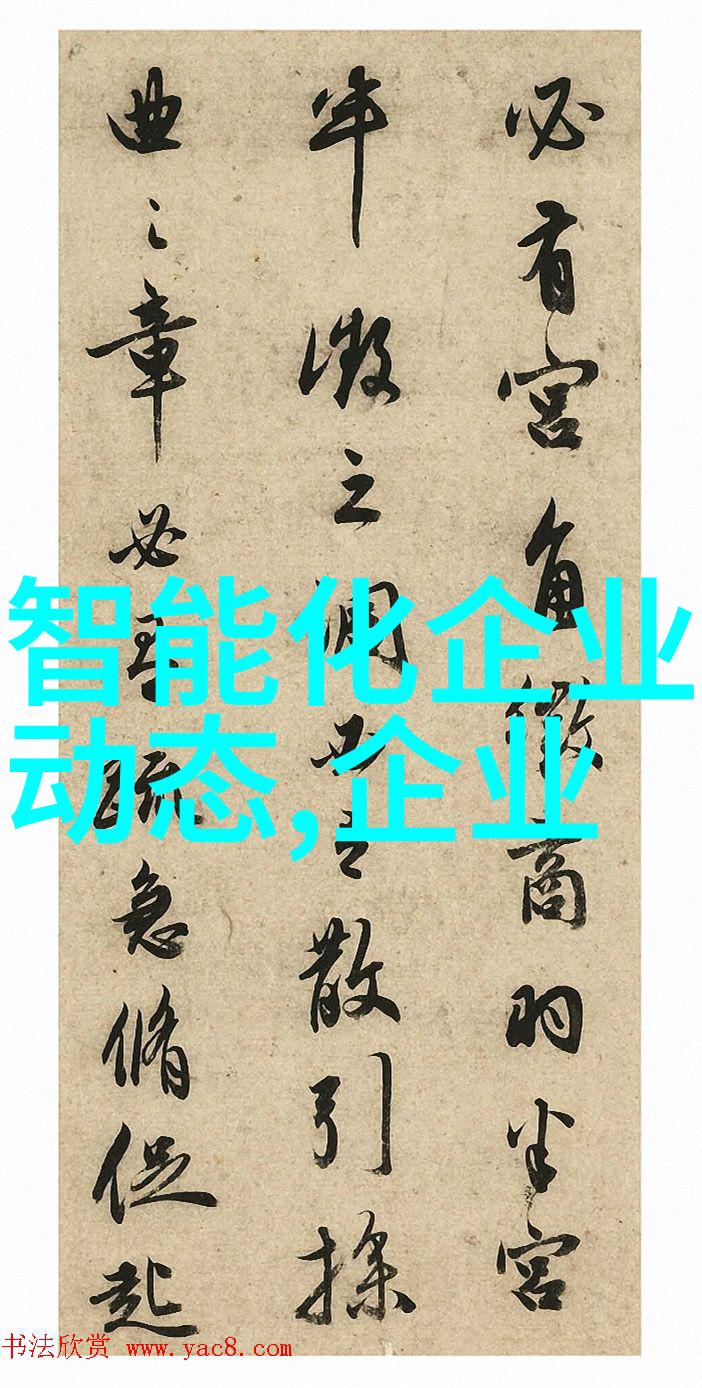 必有宫角徵商羽半宫
半徵之调必有散引操
曲之章必有疏急脩促起
智能化企业
动态,企业
书法欣赏 www.yac8.com